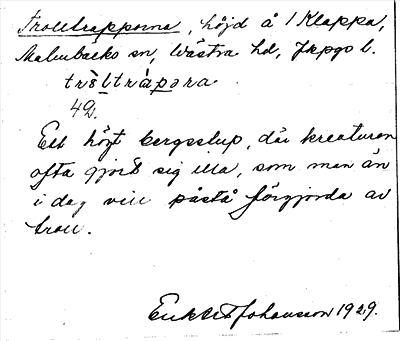 Trolltrapporna, höjd å 1 Klappa,
Malmbäcks sn, Västra hd, Jkpgs l.
tròltràpora
4D.
Ett högt bergsstup, där kreaturen
ofta gjort sig illa, som man än
i dag vill påstå förgjorda av
troll.
Johansson 1929.